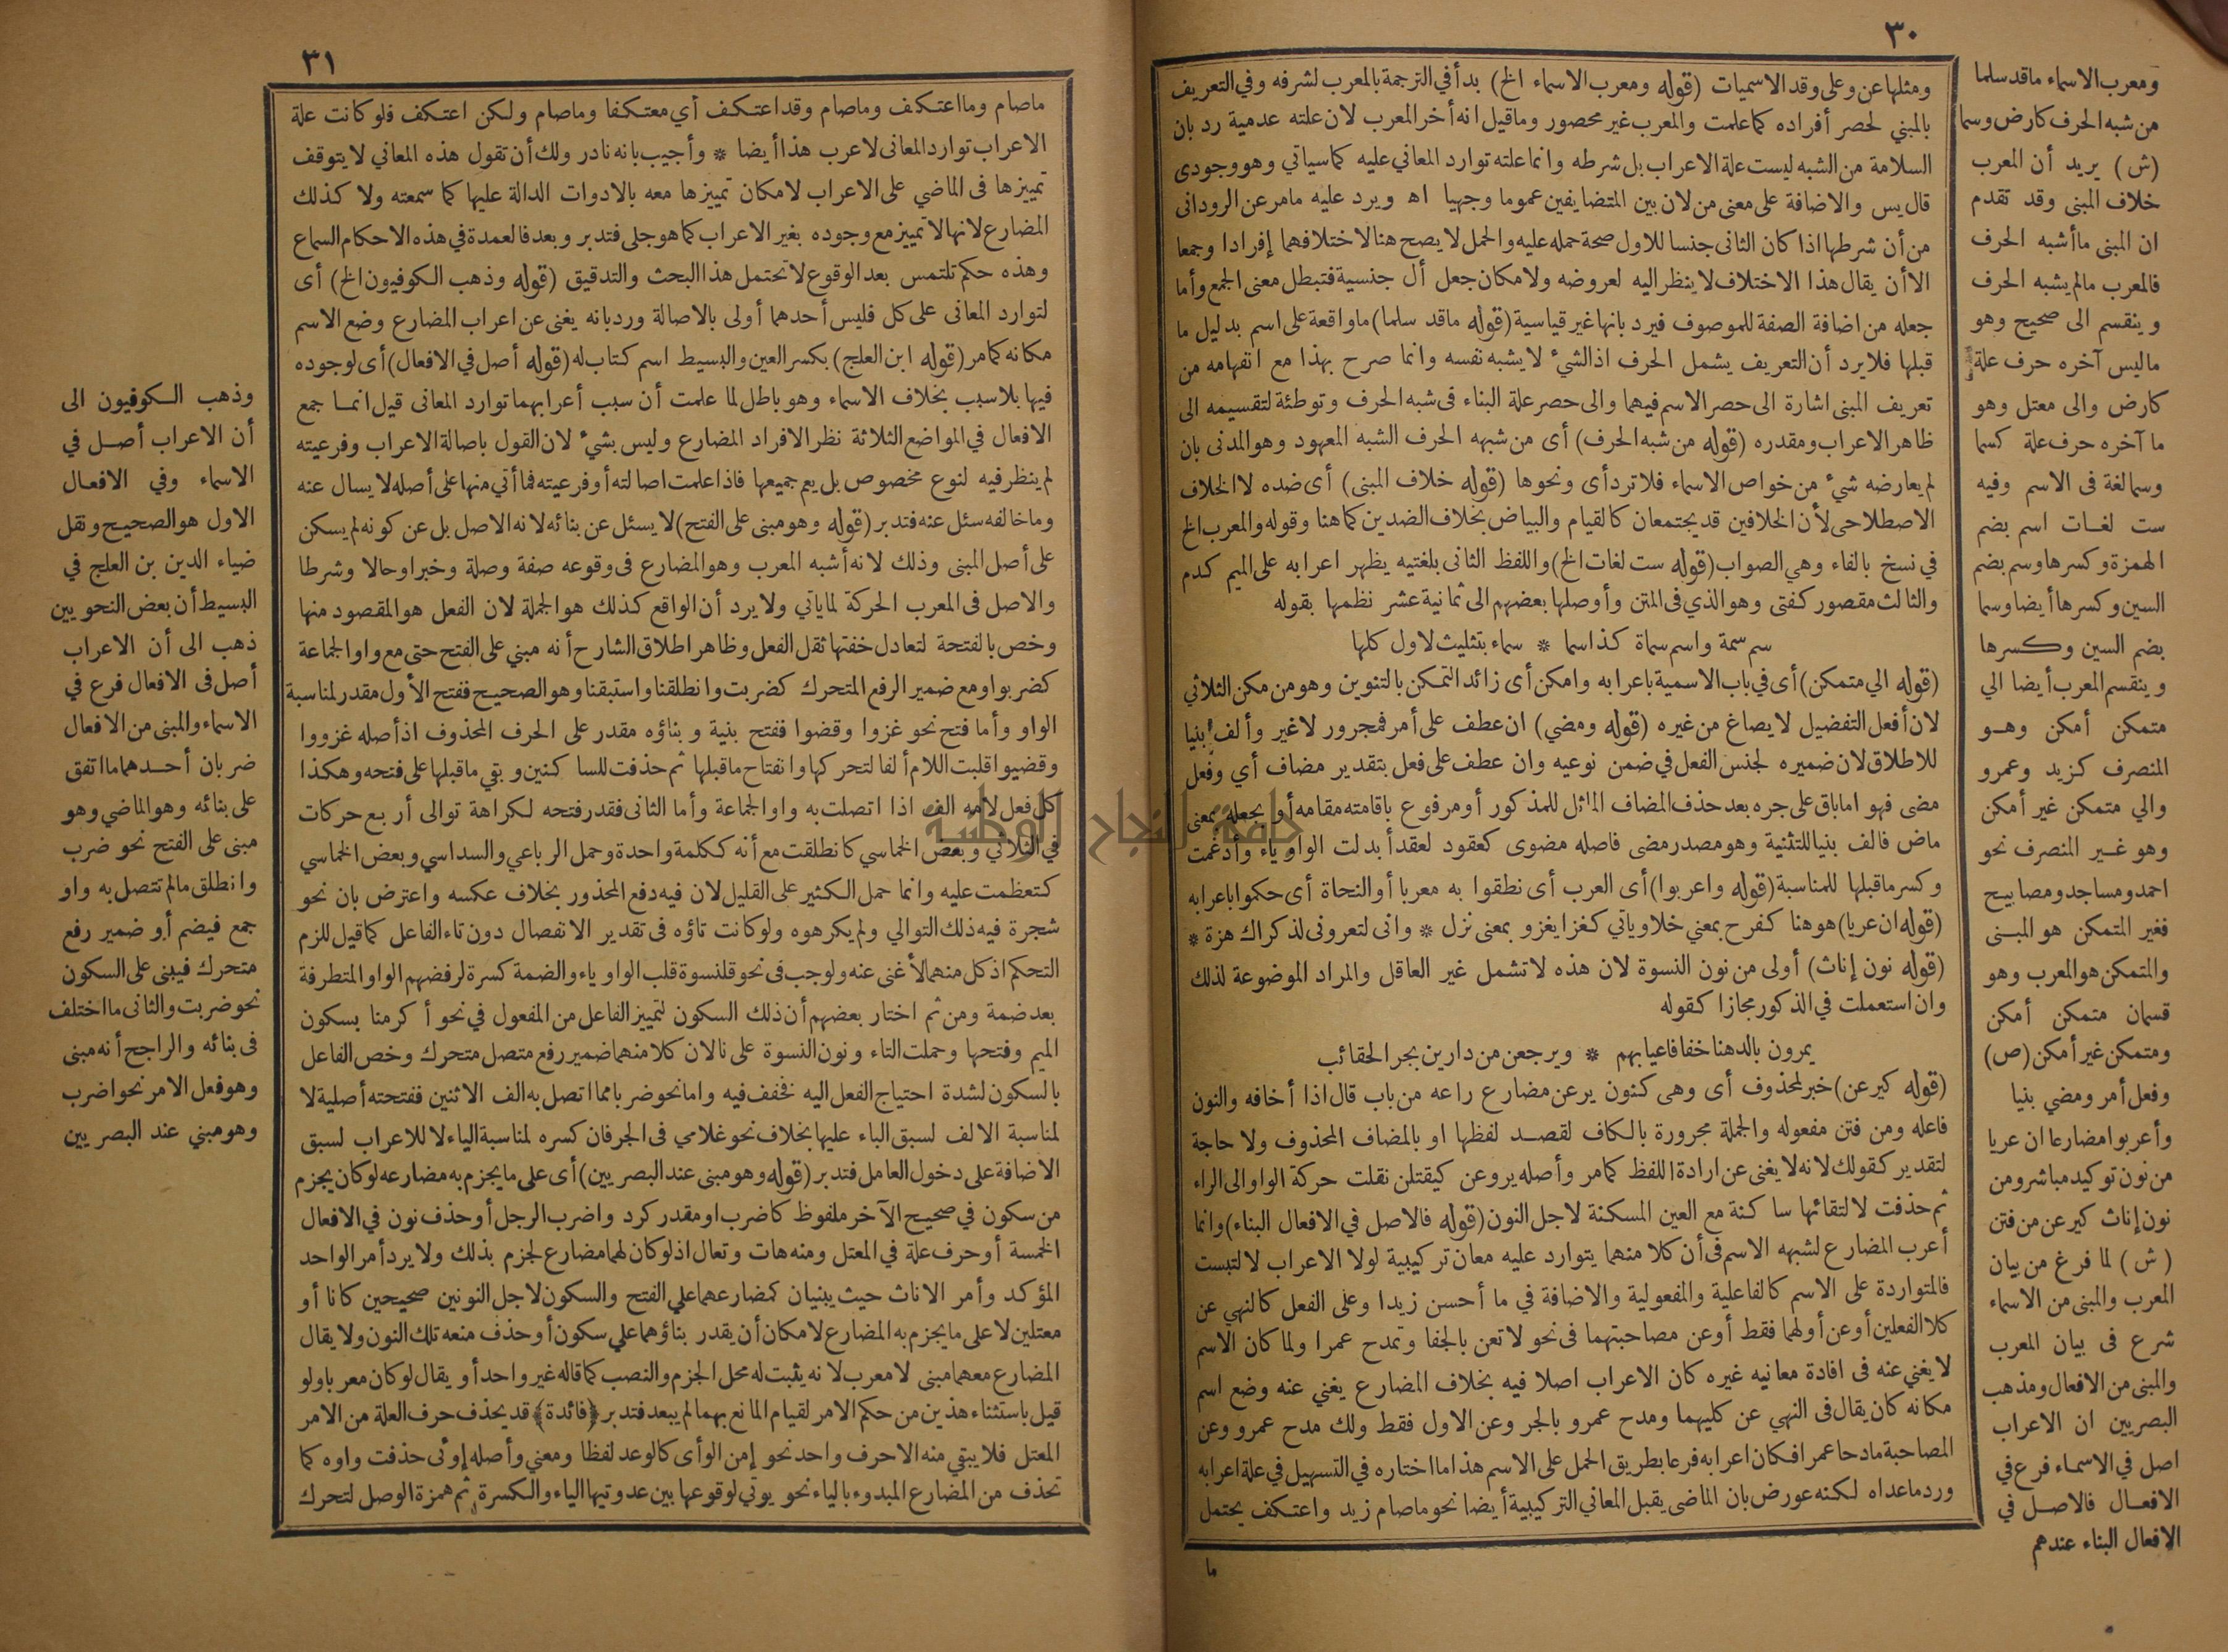 ٣٠
ومعرب الاسماء ماقد سلما
من شبه الحرف كارض وسما
(ش) يريد أن المعرب
خلاف المبنى وقد تقدم
ان المبنى ماأشبه الحرف
فالمعرب مالم يشبه الحرف
وينقسم الى صحيح وهو
ماليس آخره حرف علة
كارض والى معتل وهو
ما آخره حرف علة كسما
وسما لغة فى الاسم وفيه
ست لغات اسم بضم
الهمزة وكسرها وسم بضم
السين وكسرها أيضا وسما
بضم السين وكسرها
وينقسم المعرب أيضا الي
متمكن أمكن وهو
المنصرف كزيد وعمرو
والي متمكن غير أمكن
وهو غير المنصرف نحو
احمد ومساجد ومصابيح
فغير المتمكن هو المبنى
والمتمكن هو المعرب وهو
قسمان متمكن أمكن
ومتمكن غير أمكن (ص)
وفعل أمر ومضي بنيا
وأعربوا مضارعا ان عريا
من نون توكيد مباشر ومن
نون إناث كيرعن من فتن
(ش) لما فرغ من بيان
المعرب والمبنى من الاسماء
شرع فى بيان المعرب
والمبنى من الافعال ومذهب
البصريين ان الاعراب
اصل في الاسماء فرع في
الافعال فالاصل في
الافعال البناء عندهم
ومثلها عن وعلى وقد الاسميات (قوله ومعرب الاسماء الخ) بدأ في الترجمة بالمعرب لشرفه وفي التعريف
بالمبني لحصر أفراده كما علمت والمعرب غير محصور وماقيل انه أخر المعرب لان علته عدمية رد بان
السلامة من الشبه ليست علة الاعراب بل شرطه وانما علته توارد المعاني عليه كما سياتي وهو وجودى
قال يس والاضافة على معنى من لان بين المتضايفين عموما وجهيا اه ويرد عليه مامر عن الرودانى
من أن شرطها اذا كان الثانى جنسا للاول صحة حمله عليه والحمل لا يصح هنا لاختلافهما إفرادا وجمعا
الا أن يقال هذا الاختلاف لا ينظر اليه لعروضه ولامكان جعل أل جنسية فتبطل معنى الجمع وأما
جعله من اضافة الصفة للموصوف فيرد بانها غير قياسية (قوله ماقد سلما) ماواقعة على اسم بدليل ما
قبلها فلا يرد أن التعريف يشمل الحرف اذ الشيء لا يشبه نفسه وانما صرح بهذا مع اتفهامه من
تعريف المبنى اشارة الى حصر الاسم فيهما والى حصر علة البناء فى شبه الحرف وتوطئة لتقسيمه الى
ظاهر الاعراب ومقدره (قوله من شبه الحرف) أى من شبهه الحرف الشبه المعهود وهو المدنى بان
لم يعارضه شيء من خواص الاسماء فلا ترد أى ونحوها (قوله خلاف المبنى) أى ضده لا الخلاف
الاصطلاحى لأن الخلافين قد يجتمعان كالقيام والبياض بخلاف الضدين كما هنا وقوله والمعرب الخ
في نسخ بالفاء وهي الصواب (قوله ست لغات الخ) واللفظ الثانى بلغتيه يظهر اعرابه على الميم كدم
والثالث مقصور كفتى وهو الذي فى المتن وأوصلها بعضهم الى ثمانية عشر نظمها بقوله
سم سمة واسم سماة كذا سما * سماء بتثليث لاول كلها
(قوله الي متمكن) أى في باب الاسمية باعرابه وامكن أى زائد التمكن بالتنوين وهو من مكن الثلاثي
لان أفعل التفضيل لا يصاغ من غيره (قوله ومضي) ان عطف على أمر فمجرور لاغير وألف بنيا
للاطلاق لان ضميره لجنس الفعل في ضمن نوعيه وان عطف على فعل بتقدير مضاف أي وفعل
مضى فهو اما باق على جره بعد حذف المضاف المماثل للمذكور أو مرفوع باقامته مقامه أو بجعله بمعنى
ماض فالف بنيا للتثنية وهو مصدر مضى فاصله مضوى كعقود لعقد أبدلت الواو ياء وأدغمت
وكسر ماقبلها للمناسبة (قوله واعربوا) أى العرب أى نطقوا به معربا أو النحاة أى حكموا باعرابه
(قوله ان عريا) هو هنا كفرح بمعني خلا وياتي كغزا يغزو بمعنى نزل * وانى لتعرونى لذكراك هزة *
(قوله نون إناث) أولى من نون النسوة لان هذه لا تشمل غير العاقل والمراد الموضوعة لذلك
وان استعملت في الذكور مجازا كقوله
يمرون بالدهنا خفافا عيابهم * ويرجعن من دارين بجر الحقائب
(قوله كيرعن) خبر لمحذوف أى وهى كنون يرعن مضارع راعه من باب قال اذا أخافه والنون
فاعله ومن فتن مفعوله والجملة مجرورة بالكاف لقصد لفظها او بالمضاف المحذوف ولا حاجة
لتقدير كقولك لانه لا يغنى عن ارادة اللفظ كما مر وأصله يروعن كيقتلن نقلت حركة الواو الى الراء
ثم حذفت لالتقائها ساكنة مع العين المسكنة لاجل النون (قوله فالاصل في الافعال البناء) وانما
أعرب المضارع لشبهه الاسم فى أن كلا منهما يتوارد عليه معان تركيبية لولا الاعراب لالتبست
فالمتواردة على الاسم كالفاعلية والمفعولية والاضافة في ما أحسن زيدا وعلى الفعل كالنهي عن
كلا الفعلين أو عن أولهما فقط أو عن مصاحبتهما فى نحو لا تعن بالجفا وتمدح عمرا ولما كان الاسم
لا يغني عنه فى افادة معانيه غيره كان الاعراب اصلا فيه بخلاف المضارع يغني عنه وضع اسم
مكانه كان يقال فى النهي عن كليهما ومدح عمرو بالجر وعن الاول فقط ولك مدح عمرو وعن
المصاحبة مادحا عمرا فكان اعرابه فرعا بطريق الحمل على الاسم هذا ما اختاره في التسهيل في علة اعرابه
ورد ماعداه لكنه عورض بان الماضى يقبل المعاني التركيبية أيضا نحو ماصام زيد واعتكف يحتمل
ما
٣١
ماصام وما اعتكف وماصام وقد اعتكف أي معتكفا وماصام ولكن اعتكف فلو كانت علة
الاعراب توارد المعانى لاعرب هذا أيضا * وأجيب بانه نادر ولك أن تقول هذه المعاني لا يتوقف
تمييزها فى الماضي على الاعراب لامكان تمييزها معه بالادوات الدالة عليها كما سمعته ولا كذلك
المضارع لانها لا تمييز مع وجوده بغير الاعراب كما هو جلى فتدبر وبعد فالعمدة في هذه الاحكام السماع
وهذه حكم تلتمس بعد الوقوع لا تحتمل هذا البحث والتدقيق (قوله وذهب الكوفيون الخ) أى
لتوارد المعانى على كل فليس أحدهما أولى بالاصالة ورد بانه يغنى عن اعراب المضارع وضع الاسم
مكانه كما مر (قوله ابن العلج) بكسر العين والبسيط اسم كتاب له (قوله أصل في الافعال) أى لوجوده
فيها بلا سبب بخلاف الاسماء وهو باطل لما علمت أن سبب أعرابهما توارد المعانى قيل انما جمع
الافعال في المواضع الثلاثة نظر الافراد المضارع وليس بشيء لان القول باصالة الاعراب وفرعيته
لم ينظر فيه لنوع مخصوص بل يعم جميعها فاذا علمت اصالته أو فرعيته فما أتي منها على أصله لا يسال عنه
وما خالفه سئل عنه فتدبر (قوله وهو مبنى على الفتح) لا يسئل عن بنائه لانه الاصل بل عن كونه لم يسكن
على أصل المبنى وذلك لانه أشبه المعرب وهو المضارع فى وقوعه صفة وصلة وخبرا وحالا وشرطا
والاصل فى المعرب الحركة لما ياتي ولا يرد أن الواقع كذلك هو الجملة لان الفعل هو المقصود منها
وخص بالفتحة لتعادل خفتها ثقل الفعل وظاهر اطلاق الشارح أنه مبني على الفتح حتى مع واو الجماعة
كضربوا ومع ضمير الرفع المتحرك كضربت وانطلقنا واستبقنا وهو الصحيح ففتح الأول مقدر لمناسبة
الواو وأما فتح نحو غزوا وقضوا ففتح بنية وبناؤه مقدر على الحرف المحذوف اذ أصله غزووا
وقضيوا قلبت اللام ألفا لتحركها وانفتاح ماقبلها ثم حذفت للساكنين وبقي ماقبلها على فتحه وهكذا
كل فعل لامه الف اذا اتصلت به واو الجماعة وأما الثانى فقدر فتحه لكراهة توالى أربع حركات
في الثلاثي وبعض الخماسي كانطلقت مع أنه ككلمة واحدة وحمل الرباعي والسداسي وبعض الخماسي
كتعظمت عليه وانما حمل الكثير على القليل لان فيه دفع المحذور بخلاف عكسه واعترض بان نحو
شجرة فيه ذلك التوالي ولم يكرهوه ولو كانت تاؤه فى تقدير الانفصال دون تاء الفاعل كما قيل للزم
التحكم اذ كل منهما لا غنى عنه ولوجب فى نحو قلنسوة قلب الواو ياء والضمة كسرة لرفضهم الواو المتطرفة
بعد ضمة ومن ثم اختار بعضهم أن ذلك السكون لتمييز الفاعل من المفعول في نحو أكرمنا بسكون
الميم وفتحها وحملت التاء ونون النسوة على نا لان كلا منهما ضمير رفع متصل متحرك وخص الفاعل
بالسكون لشدة احتياج الفعل اليه فخفف فيه واما نحو ضربا مما اتصل به الف الاثنين ففتحته أصلية لا
لمناسبة الالف لسبق الباء عليها بخلاف نحو غلامي فى الجر فان كسره لمناسبة الياء لا للاعراب لسبق
الاضافة على دخول العامل فتدبر (قوله وهو مبنى عند البصريين) أى على ما يجزم به مضارعه لو كان يجزم
من سكون في صحيح الآخر ملفوظ كاضرب او مقدر كرد واضرب الرجل أو حذف نون في الافعال
الخمسة أو حرف علة في المعتل ومنه هات وتعال اذ لو كان لهما مضارع لجزم بذلك ولا يرد أمر الواحد
المؤكد وأمر الاناث حيث يبنيان كمضارعهما علي الفتح والسكون لاجل النونين صحيحين كانا أو
معتلين لا على ما يجزم به المضارع لامكان أن يقدر بناؤهما علي سكون أو حذف منعه تلك النون ولا يقال
المضارع معهما مبنى لا معرب لانه يثبت له محل الجزم والنصب كما قاله غير واحد أو يقال لو كان معربا ولو
قيل باستثناء هذين من حكم الامر لقيام المانع بهما لم يبعد فتدبر (فائدة) قد يحذف حرف العلة من الامر
المعتل فلا يبقي منه الا حرف واحد نحو إمن الوأى كالوعد لفظا ومعني وأصله إوئى حذفت واوه كما
تحذف من المضارع المبدوء بالياء نحو يوئي لوقوعها بين عدوتيها الياء والكسرة ثم همزة الوصل لتحرك
وذهب الكوفيون الى
أن الاعراب أصل في
الاسماء وفي الافعال
الاول هو الصحيح ونقل
ضياء الدين بن العلج في
البسيط أن بعض النحويين
ذهب الى أن الاعراب
أصل فى الافعال فرع في
الاسماء والمبنى من الافعال
ضربان أحدهما ما اتفق
على بنائه وهو الماضي وهو
مبنى على الفتح نحو ضرب
وانطلق مالم تتصل به واو
جمع فيضم أو ضمير رفع
متحرك فيبنى على السكون
نحو ضربت والثانى ما اختلف
فى بنائه والراجح أنه مبنى
وهو فعل الامر نحو اضرب
وهو مبني عند البصريين
جامعة النجاح الوطنية